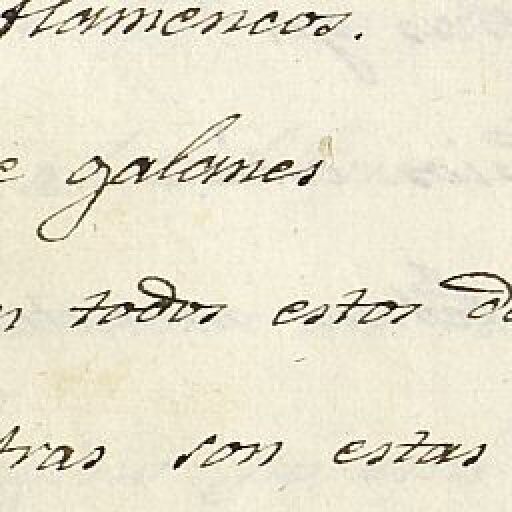 flamencos.
e galanes
n todos estos d
tras son estas